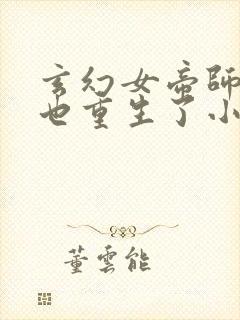 玄幻女帝师
也重生了小
董云能